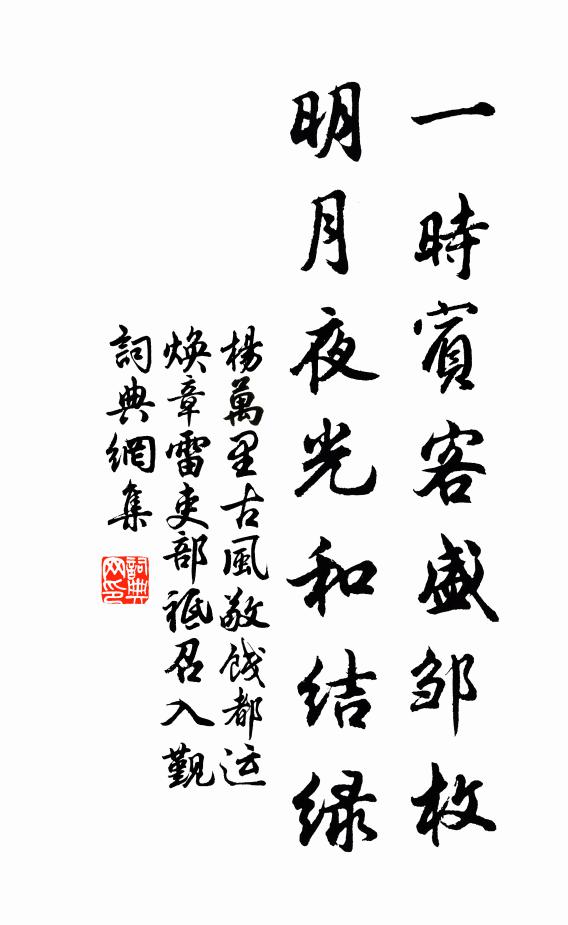 一時賓客盛邹枚
明月夜光和结绿
楊萬里古風敬餞都运
焕章雷吏部祗召入觐
詞典網集
詞典网印